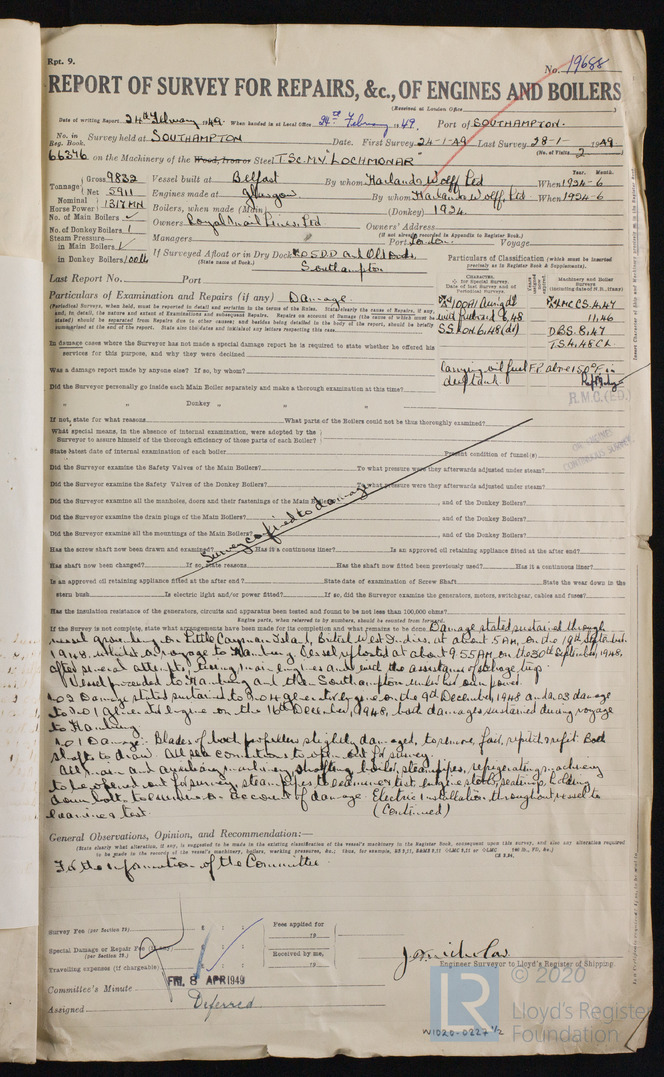 Rpt. 9.
No. 19688
REPORT OF SURVEY FOR REPAIRS, &c., OF ENGINES AND BOILERS
(Received at London Office )
Date of writing Report 24th February 1949. When handed in at Local Office 24th February 1949. Port of SOUTHAMPTON.
No. in Reg. Book. Survey held at SOUTHAMPTON Date. First Survey 24-1-49 Last Survey 28-1-1949
(No. of Visits 2 )
66346 on the Machinery of the Wood, Iron or Steel T.Sc.M.V "LOCHMONAR"
Tonnage Gross 9822 Vessel built at Belfast By whom Harland & Wolff Ltd When 1924-6
Year. Month.
Net 5911 Engines made at Glasgow By whom Harland & Wolff, Ltd When 1924-6
Nominal Horse Power 1317MN Boilers, when made (Main) (Donkey) 1924.
No. of Main Boilers
Owners Royal Mail Lines, Ltd Owners' Address
No. of Donkey Boilers 1
(If not already recorded in Appendix to Register Book.)
Steam Pressure—
Managers Port London. Voyage
in Main Boilers
in Donkey Boilers 100 lb If Surveyed Afloat or in Dry Dock No 5 DD and Old Docks.
(State name of Dock.) Southampton
Last Report No. Port
Particulars of Classification (which must be inserted precisely as in Register Book & Supplements).
Particulars of Examination and Repairs (if any) Damage
CHARACTER. Date of last Survey and of Periodical Surveys.
Machinery and Boiler Surveys (including dates of N.B., if any)
+100A1
with freeboard 6.48
S.S.No
+LMC CS.4.47
11.46
DBS 8.47
T.S.4.48CL
Carrying oil fuel F.P. above 150°F in deep tank.
R.M.C. (ED.)
In damage cases where the Surveyor has not made a special damage report he is required to state whether he offered his services for this purpose, and why they were declined
Was a damage report made by anyone else? If so, by whom?
Did the Surveyor personally go inside each Main Boiler separately and make a thorough examination at this time?
" " Donkey " " "
If not, state for what reasons What parts of the Boilers could not be thus thoroughly examined?
What special means, in the absence of internal examination, were adopted by the Surveyor to assure himself of the thorough efficiency of those parts of each Boiler?
State latest date of internal examination of each boiler Present condition of funnel(s)
Did the Surveyor examine the Safety Valves of the Main Boilers? To what pressure were they afterwards adjusted under steam?
Did the Surveyor examine the Safety Valves of the Donkey Boilers? To what pressure were they afterwards adjusted under steam?
Did the Surveyor examine all the manholes, doors and their fastenings of the Main Boilers? , and of the Donkey Boilers?
Did the Surveyor examine the drain plugs of the Main Boilers? , and of the Donkey Boilers?
Did the Surveyor examine all the mountings of the Main Boilers? , and of the Donkey Boilers?
Survey confined to damage
Has the screw shaft now been drawn and examined? Has it a continuous liner? Is an approved oil retaining appliance fitted at the after end?
Has shaft now been changed? If so, state reasons Has the shaft now fitted been previously used? Has it a continuous liner?
Is an approved oil retaining appliance fitted at the after end? State date of examination of Screw Shaft State the wear down in the
stern bush Is electric light and/or power fitted? If so, did the Surveyor examine the generators, motors, switchgear, cables and fuses?
Has the insulation resistance of the generators, circuits and apparatus been tested and found to be not less than 100,000 ohms?
Engine parts, when referred to by numbers, should be counted from forward.
If the Survey is not complete, state what arrangements have been made for its completion and what remains to be done Damage stated sustained through
vessel grounding on Little Cayman Island, British West Indies, at about 5AM, on the 19th September
1948 whilst on voyage to Hamburg. Vessel refloated at about 9.55AM, on the 30th September, 1948,
after several attempts, using main engines and with the assistance of salvage tug.
Vessel proceeded to Hamburg and then Southampton under her own power.
No 2 Damage stated sustained to No 4 generator engine on the 9th December, 1948 and No 3 damage
to No 1 generator engine on the 16th December, 1948, both damages sustained during voyage
to Hamburg.
No 1 Damage:- Blades of both propellers slightly damaged, to remove, fair, repitch & refit. Both
shafts to draw. All sea connections to open out for survey.
All main and auxiliary machinery, shafting, boiler, steam pipes, refrigerating machinery
to be opened out for survey, steam pipes to examine & test, engine stools, seatings, holding
down bolts, to examine on account of damage. Electric installation throughout vessel to
examine & test. (Continued)
General Observations, Opinion, and Recommendation:—
(State clearly what alteration, if any, is suggested to be made in the existing classification of the vessel's machinery in the Register Book, consequent upon this survey, and also any alteration required
For the information of the Committee.
Survey Fee (per Section 29) £ : :
Fees applied for
19
Special Damage or Repair Fee (if any) (per Section 29.) £ : :
Received by me,
19
Travelling expenses (if chargeable) £ : :
Engineer Surveyor to Lloyd's Register of Shipping.
Committee's Minute FRI. 8 APR 1949
Assigned Deferred
© 2020
LR
Lloyd's Register
Foundation
W1020-0227 1/2